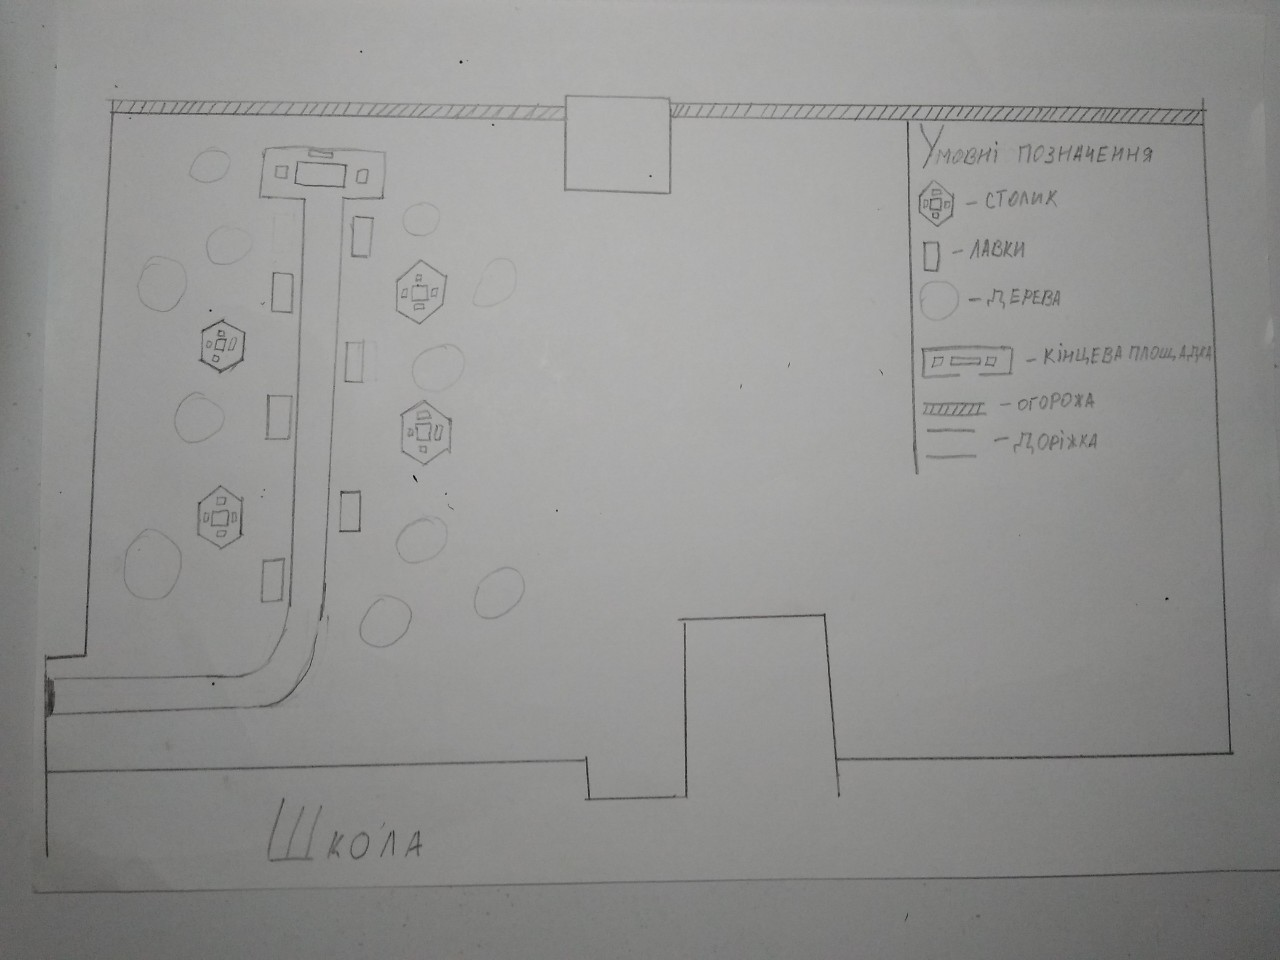 Умовні позначення
- столик
- лавки
- дерева
- кінцева площадка
- огорожа
- доріжка
Школа